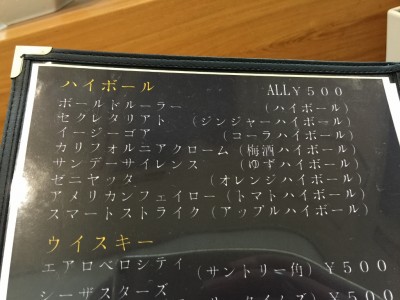 ハイボール ALL￥500
ボールドルーラー (ハイボール)
セクレタリアト (ジンジャーハイボール)
イージーゴア (コーラハイボール)
カリフォルニアクローム (梅酒ハイボール)
サンデーサイレンス (ゆずハイボール)
ゼニヤッタ (オレンジハイボール)
アメリカンフェイロー (トマトハイボール)
スマートストライク (アップルハイボール)
ウイスキー
エアロベロシティ (サントリー角) ￥500
シーザスターズ ￥500